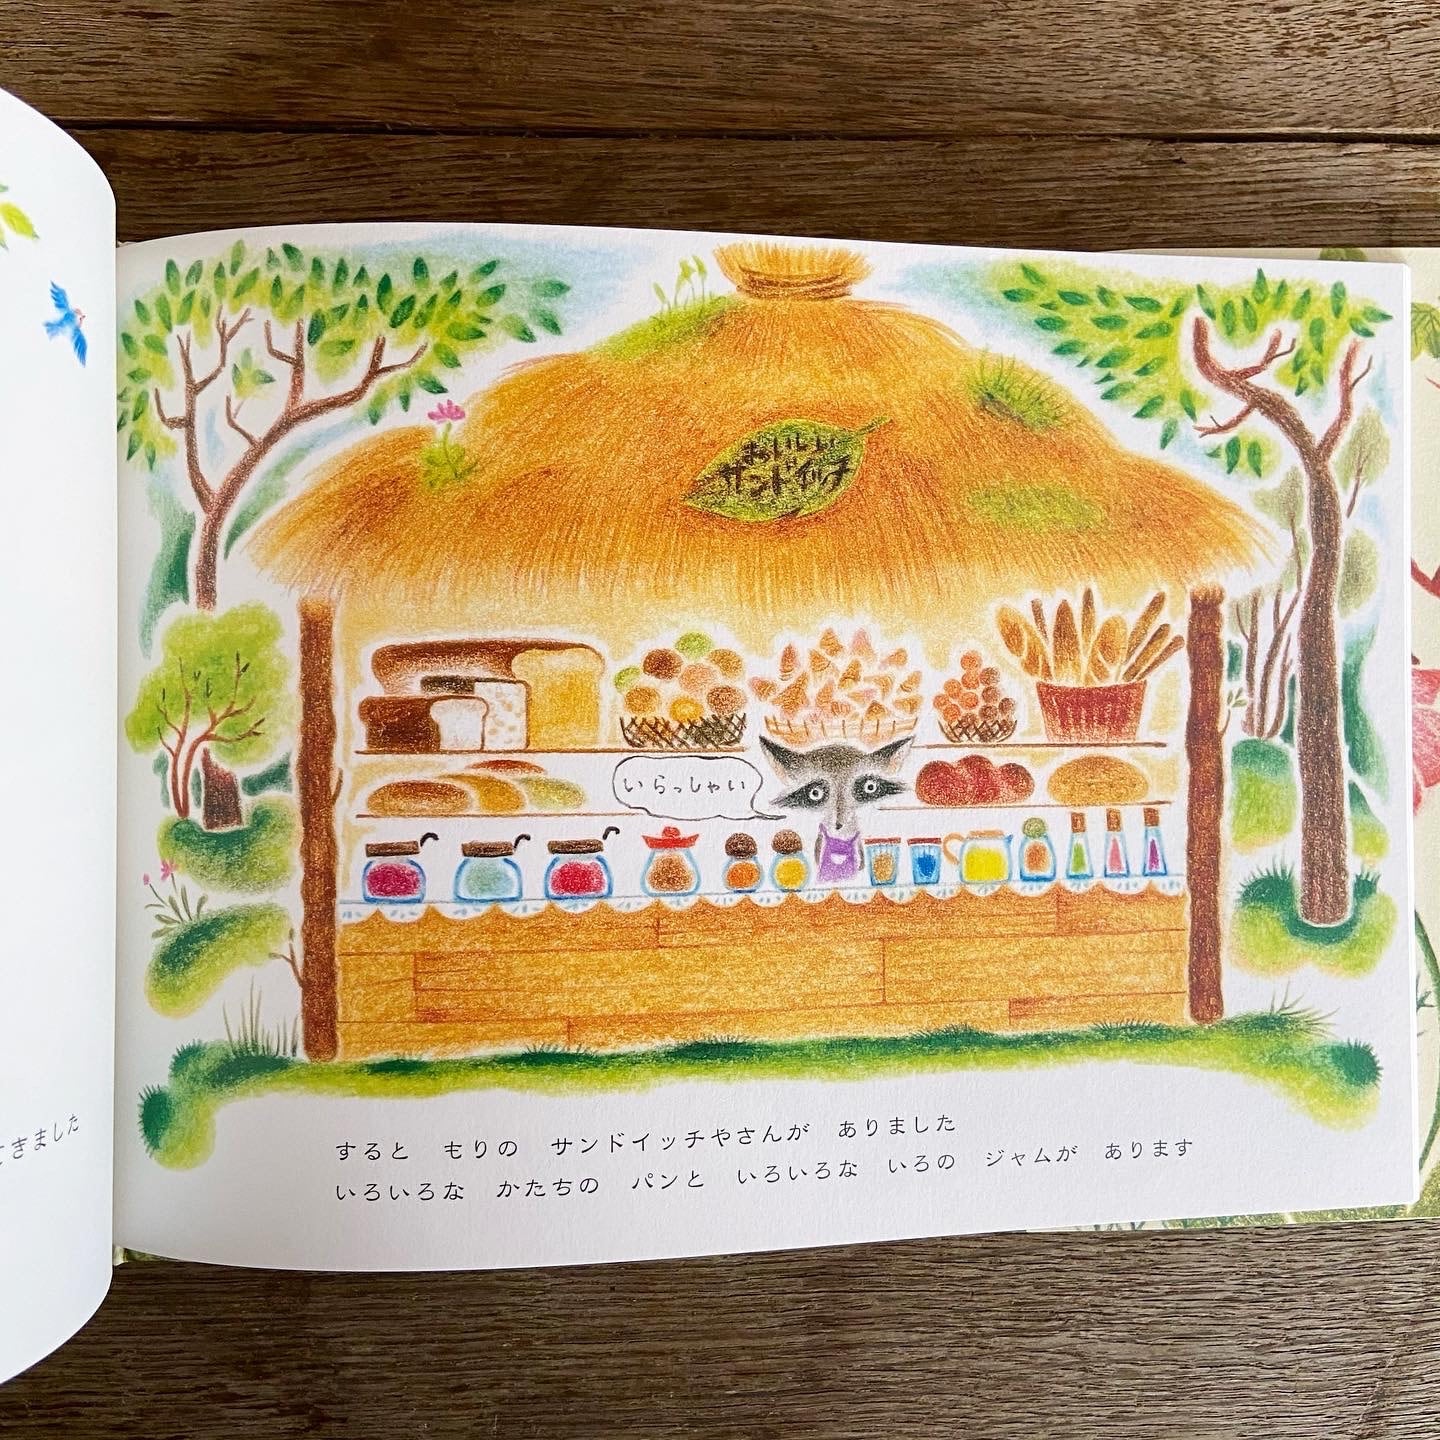 おいしい
サンドイッチ
いらっしゃい
きました
すると もりの サンドイッチやさんが ありました
いろいろな かたちの パンと いろいろな いろの ジャムが あります